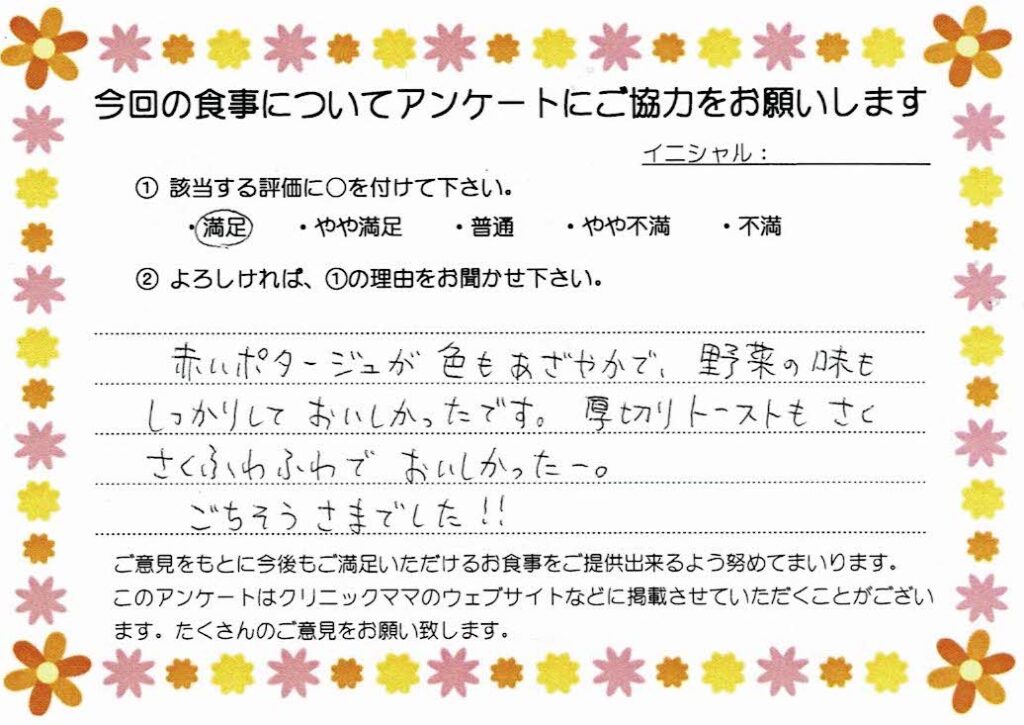 今回の食事についてアンケートにご協力をお願いします
イニシャル：
① 該当する評価に〇を付けて下さい。
・満足 ・やや満足 ・普通 ・やや不満 ・不満
② よろしければ、①の理由をお聞かせ下さい。
赤いポタージュが色もあざやかで、野菜の味も
しっかりして おいしかったです。 厚切りトーストも さく
さくふわふわで おいしかったー。
ごちそうさまでした!!
ご意見をもとに今後もご満足いただけるお食事をご提供出来るよう努めてまいります。
このアンケートはクリニックママのウェブサイトなどに掲載させていただくことがござい
ます。たくさんのご意見をお願い致します。